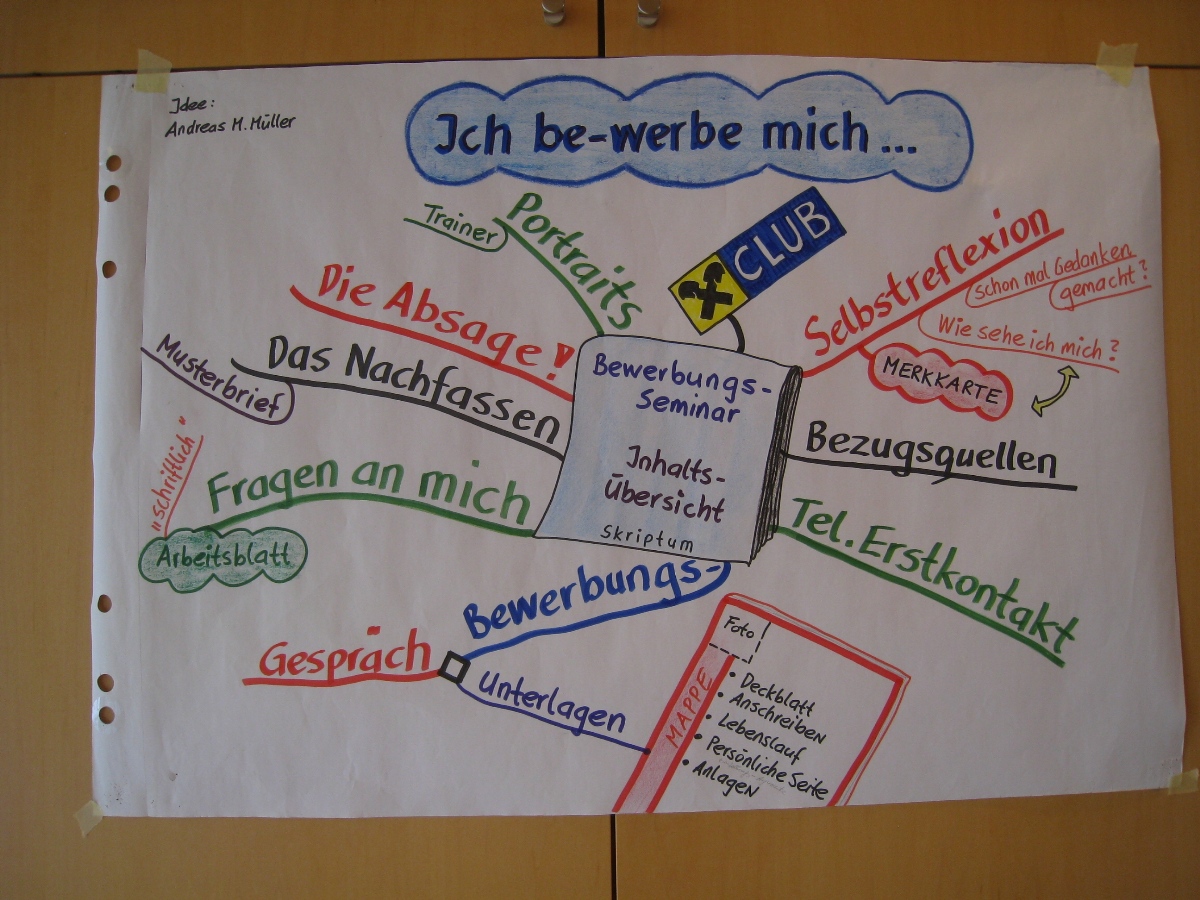 Idee:
Andreas M. Müller
Ich be-werbe mich...
Portraits
Trainer
CLUB
Selbstreflexion
schon mal Gedanken
gemacht?
Wie sehe ich mich?
MERKKARTE
Die Absage!
Das Nachfassen
Musterbrief
Bewerbungs-
Seminar
Inhalts-
Übersicht
Skriptum
Bezugsquellen
Fragen an mich
"schriftlich"
Arbeitsblatt
Tel. Erstkontakt
Bewerbungs-
Gespräch
Unterlagen
Foto
MAPPE
• Deckblatt
• Anschreiben
• Lebenslauf
• Persönliche Seite
• Anlagen